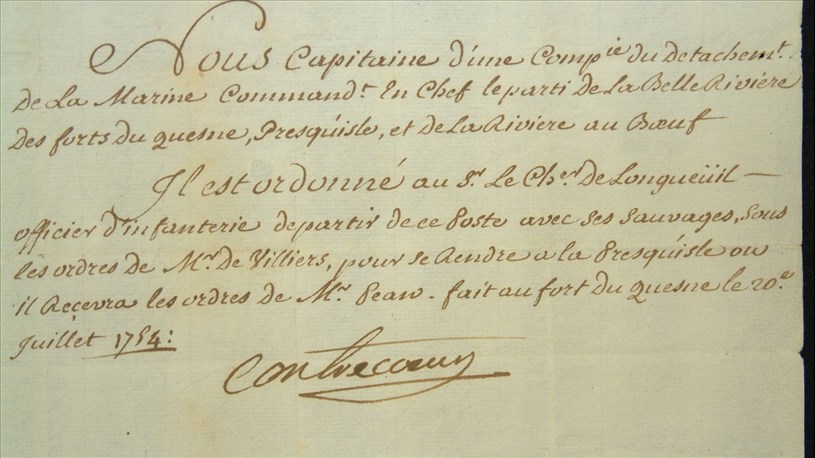 Nous Capitaine d'une Comp.ie du Detachem.t
De La Marine Command.t En Chef le parti de La Belle Riviére
Des forts du quesne, Presqu'isle, et de La Riviere au Bœuf
Il est ordonné au S.r Le Ch.er De Longueüil —
officier d'infanterie de partir de ce Poste avec ses sauvages, sous
les ordres de M.r De Villiers, pour se Rendre a la Presqu'isle ou
il Reçevra les ordres de M.r Pean. fait au fort Du quesne le 20.e
Juillet 1754:
Contrecoeur